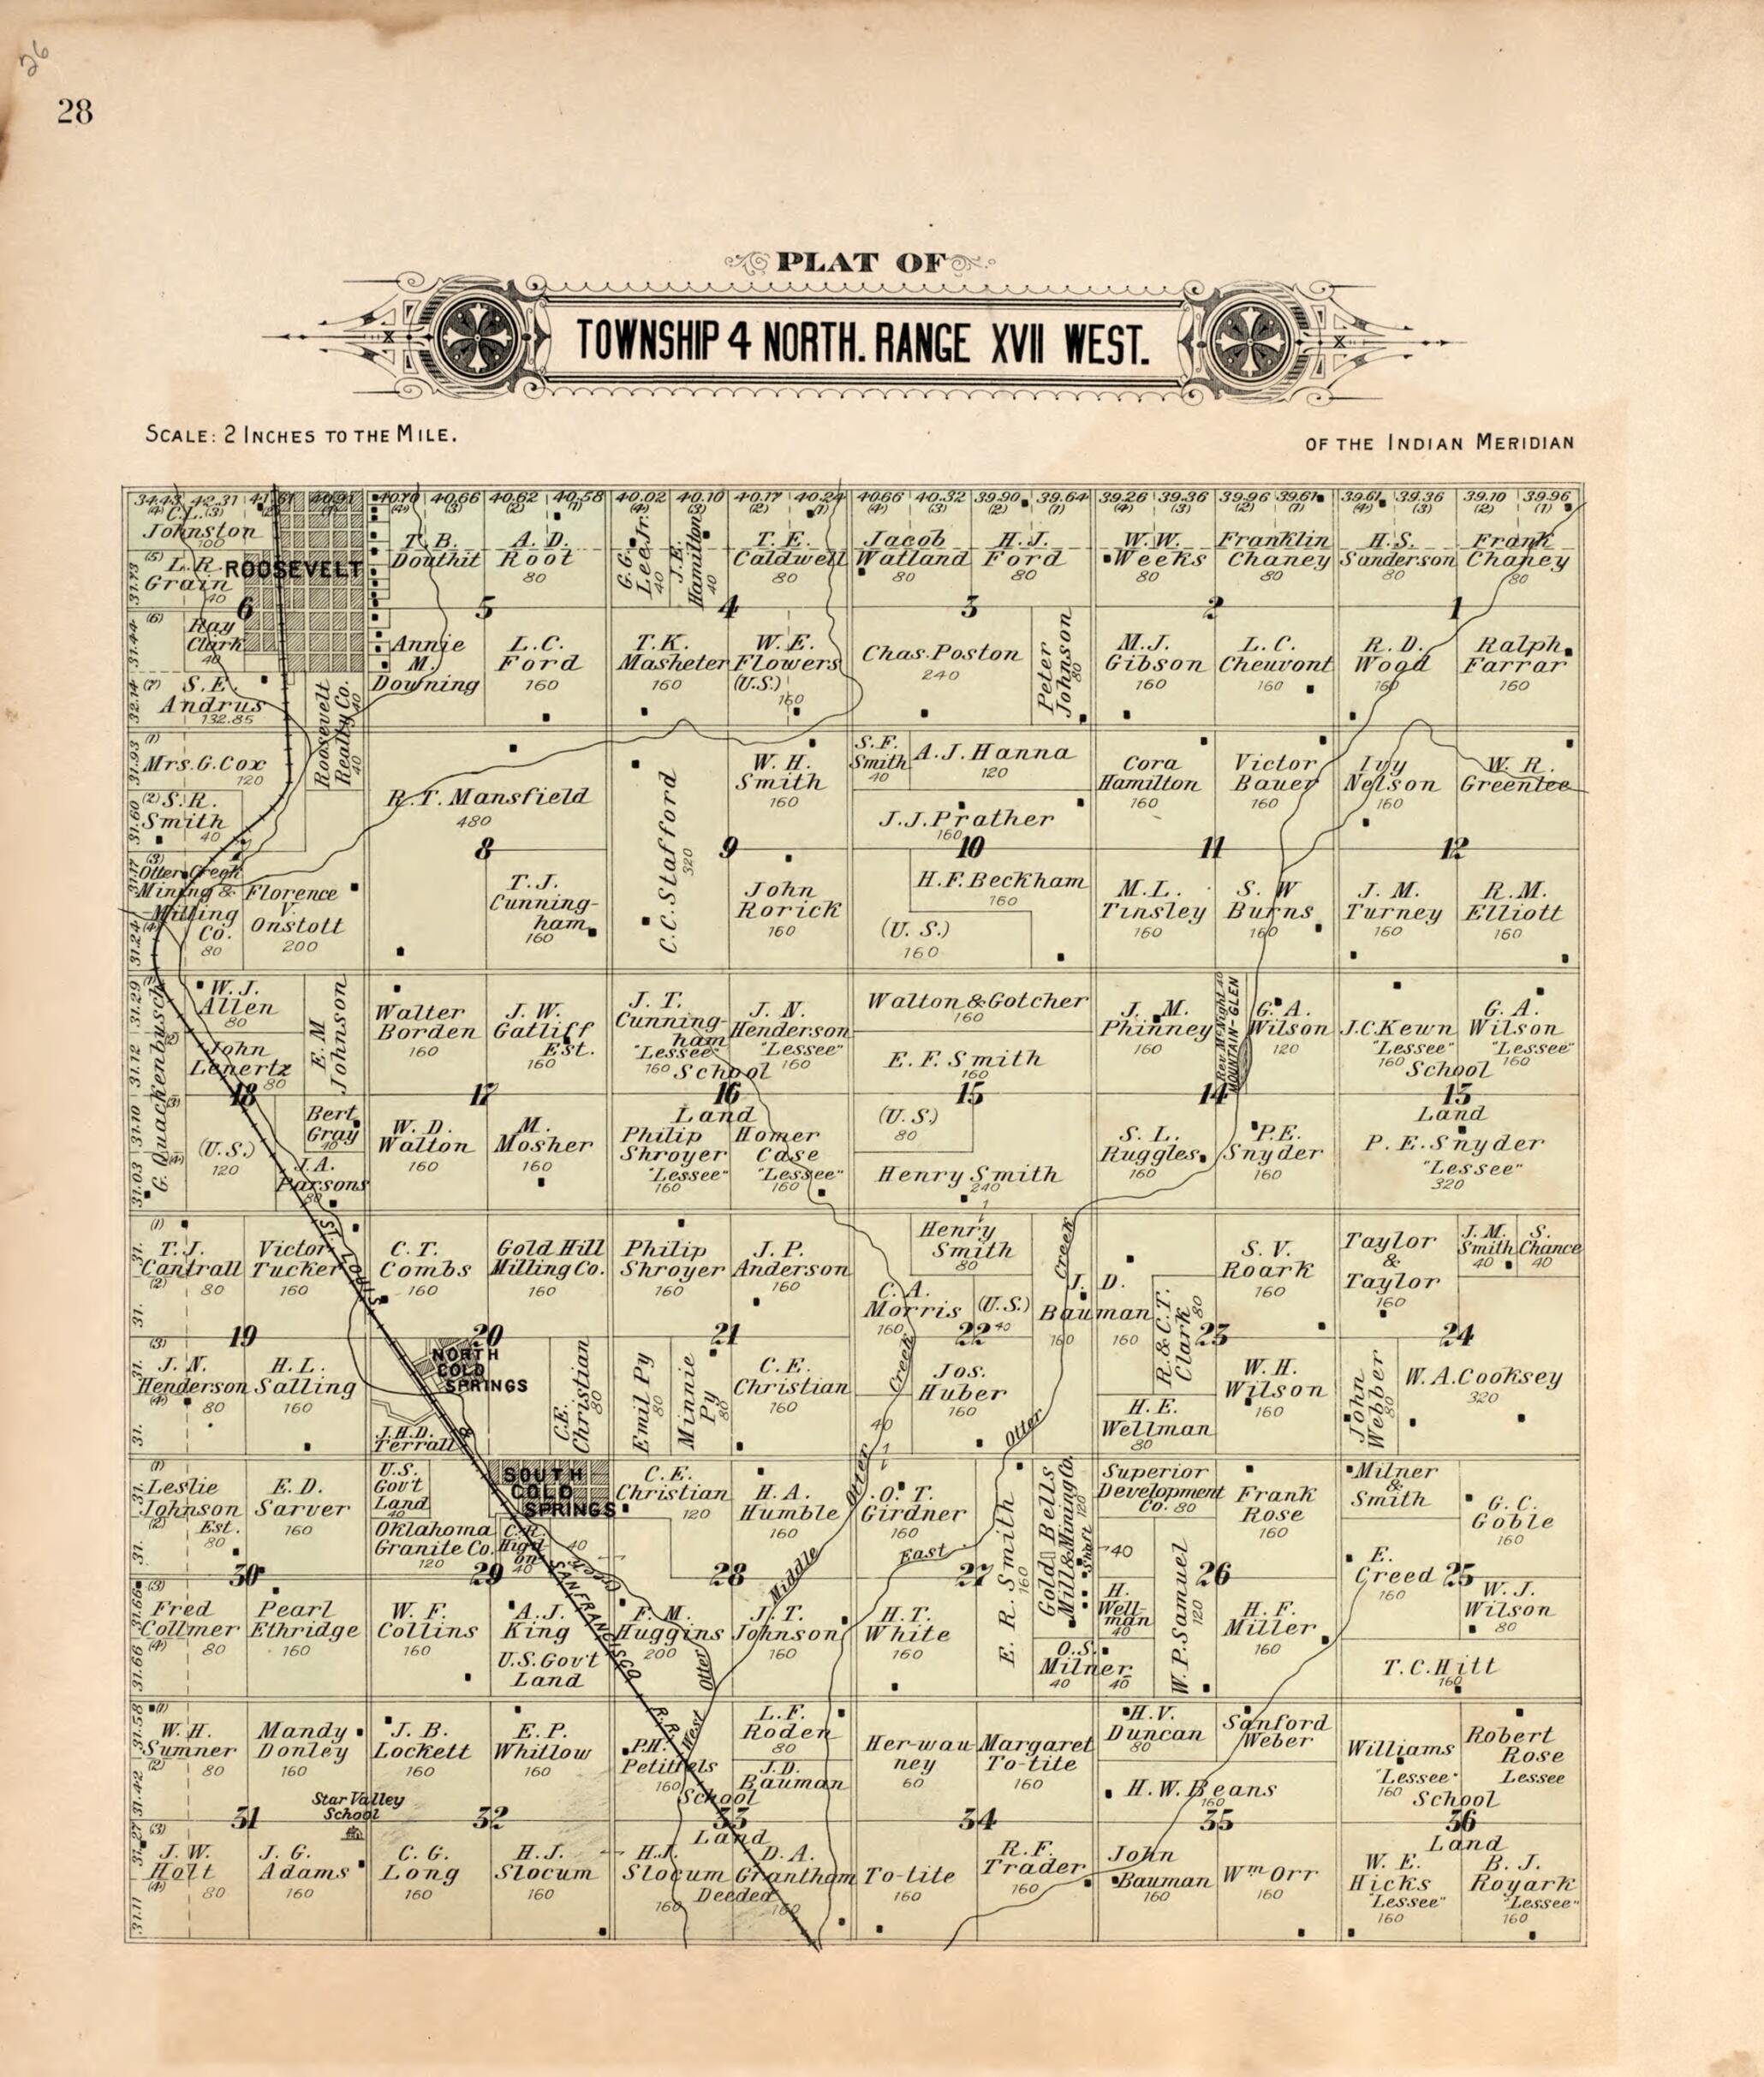 26
28
PLAT OF
TOWNSHIP 4 NORTH. RANGE XVII WEST.
SCALE: 2 INCHES TO THE MILE.
OF THE INDIAN MERIDIAN
34.43 42.31 40.70 40.66 40.62 40.58 40.02 40.10 40.17 40.24 40.66 40.32 39.90 39.64 39.26 39.36 39.96 39.61 39.61 39.36 39.10 39.96
(4) (3) (2) (1) (4) (3) (2) (1) (4) (3) (2) (1) (4) (3) (2) (1) (4) (3) (2) (1) (4) (3) (2) (1)
C.L.
Johnston
100
(5) L.R.
Grain
40
31.73
ROOSEVELT
6
(6)
Ray
Clark
40
31.44
(7) S.E.
Andrus
132.85
32.14
Roosevelt
Realty Co.
40
40
T.B.
Douthit
A.D.
Root
80
5
Annie
M.
Downing
L.C.
Ford
160
G.G.
Lee Jr.
40
J.E.
Hamilton
40
T.E.
Caldwell
80
4
T.K.
Masheter
160
W.E.
Flowers
(U.S.)
160
Jacob
Watland
80
H.J.
Ford
80
3
Chas. Poston
240
Peter
Johnson
80
W.W.
Weeks
80
Franklin
Chaney
80
2
M.J.
Gibson
160
L.C.
Cheuvont
160
H.S.
Sanderson
80
Frank
Chaney
80
1
R.D.
Wood
160
Ralph
Farrar
160
(1)
31.93
Mrs. G. Cox
120
(2) S.R.
Smith
40
31.60
(3)
Otter Creek
Mining &
Milling
Co.
80
31.17
31.24
(4)
Florence
V.
Onstott
200
R.T. Mansfield
480
8
T.J.
Cunning-
ham
160
C.C. Stafford
320
W.H.
Smith
160
9
John
Rorick
160
S.F.
Smith
40
A.J. Hanna
120
J.J. Prather
160
10
H.F. Beckham
160
(U.S.)
160
Cora
Hamilton
160
Victor
Bauer
160
11
M.L.
Tinsley
160
S.W
Burns
160
Ivy
Nelson
160
W.R.
Greenlee
12
J.M.
Turney
160
R.M.
Elliott
160
31.29
31.12
31.10
31.03
G. Quackenbusch
W.J.
Allen
80
John
Lenertz
80
E.M
Johnson
18
(U.S.)
120
Bert
Gray
40
J.A.
Parsons
80
Walter
Borden
160
J.W.
Gatliff
Est.
160
17
W.D.
Walton
160
M.
Mosher
160
J.T.
Cunning-
ham
"Lessee"
160
J.N.
Henderson
"Lessee"
160
School
16
Land
Philip
Shroyer
"Lessee"
160
Homer
Case
"Lessee"
160
Walton & Gotcher
160
E.F. Smith
160
15
(U.S.)
80
Henry Smith
240
J.M.
Phinney
160
MOUNTAIN-GLEN
G.A.
Wilson
120
14
S.L.
Ruggles
160
P.E.
Snyder
160
J.C. Kewn
"Lessee"
160
G.A.
Wilson
"Lessee"
160
School
13
Land
P.E. Snyder
"Lessee"
320
(1)
T.J.
Cantrall
(2) 80
31.
Victor
Tucker
160
31.
19
(3)
J.N.
Henderson
(4) 80
31.
H.L.
Salling
160
31.
ST. LOUIS
C.T.
Combs
160
Gold Hill
Milling Co.
160
20
NORTH
COLD
SPRINGS
J.H.D.
Terrall
C.E.
Christian
80
&
Philip
Shroyer
160
J.P.
Anderson
160
21
Emil Py
80
Minnie
Py
80
C.E.
Christian
160
Henry
Smith
80
C.A.
Morris
160
(U.S.)
40
22
Creek
Creek
Jos.
Huber
160
40
Otter
J.D.
Bauman
160
160
R. & C.T.
Clark
80
S.V.
Roark
160
23
H.E.
Wellman
80
W.H.
Wilson
160
Taylor
&
Taylor
160
J.M.
Smith
40
S.
Chance
40
24
John
Webber
80
W.A. Cooksey
320
(1)
Leslie
Johnson
(2) Est.
80
31.
E.D.
Sarver
160
31.
30
(3)
Fred
Collmer
(4) 80
31.66
31.66
Pearl
Ethridge
160
U.S.
Gov't
Land
40
SOUTH
COLD
SPRINGS
Oklahoma
Granite Co.
120
40
40
29
W.F.
Collins
160
A.J.
King
U.S. Gov't
Land
SAN FRANCISCO
R.R.
C.E.
Christian
120
H.A.
Humble
160
28
F.M.
Huggins
200
J.T.
Johnson
160
Otter
Middle
Otter
West
O.T.
Girdner
160
East
27
H.T.
White
160
E.R. Smith
160
Gold Bells
Mill & Mining Co.
120
Shaft
Superior
Development
Co. 80
Frank
Rose
160
40
26
H.
Well-
man
40
W.P. Samuel
120
H.F.
Miller
160
O.S.
Milner
40 40
Milner
&
Smith
G.C.
Goble
160
E.
Creed
160
25
W.J.
Wilson
80
T.C. Hitt
160
(1)
W.H.
Sumner
(2) 80
31.58
31.42
Mandy
Donley
160
Star Valley
School
31
(3)
J.W.
Holt
(4) 80
31.27
31.11
J.G.
Adams
160
J.B.
Lockett
160
E.P.
Whitlow
160
32
C.G.
Long
160
H.J.
Slocum
160
P.H.
Petitfels
160
L.F.
Roden
80
J.D.
Bauman
School
33
Land
H.J.
Slocum
160
D.A.
Grantham
Deeded
160
Her-wau
ney
60
Margaret
To-tite
160
34
To-tite
160
R.F.
Trader
160
H.V.
Duncan
80
Sanford
Weber
H.W. Beans
160
35
John
Bauman
160
Wm Orr
160
Williams
"Lessee"
160
Robert
Rose
Lessee
School
36
Land
W.E.
Hicks
"Lessee"
160
B.J.
Royark
"Lessee"
160